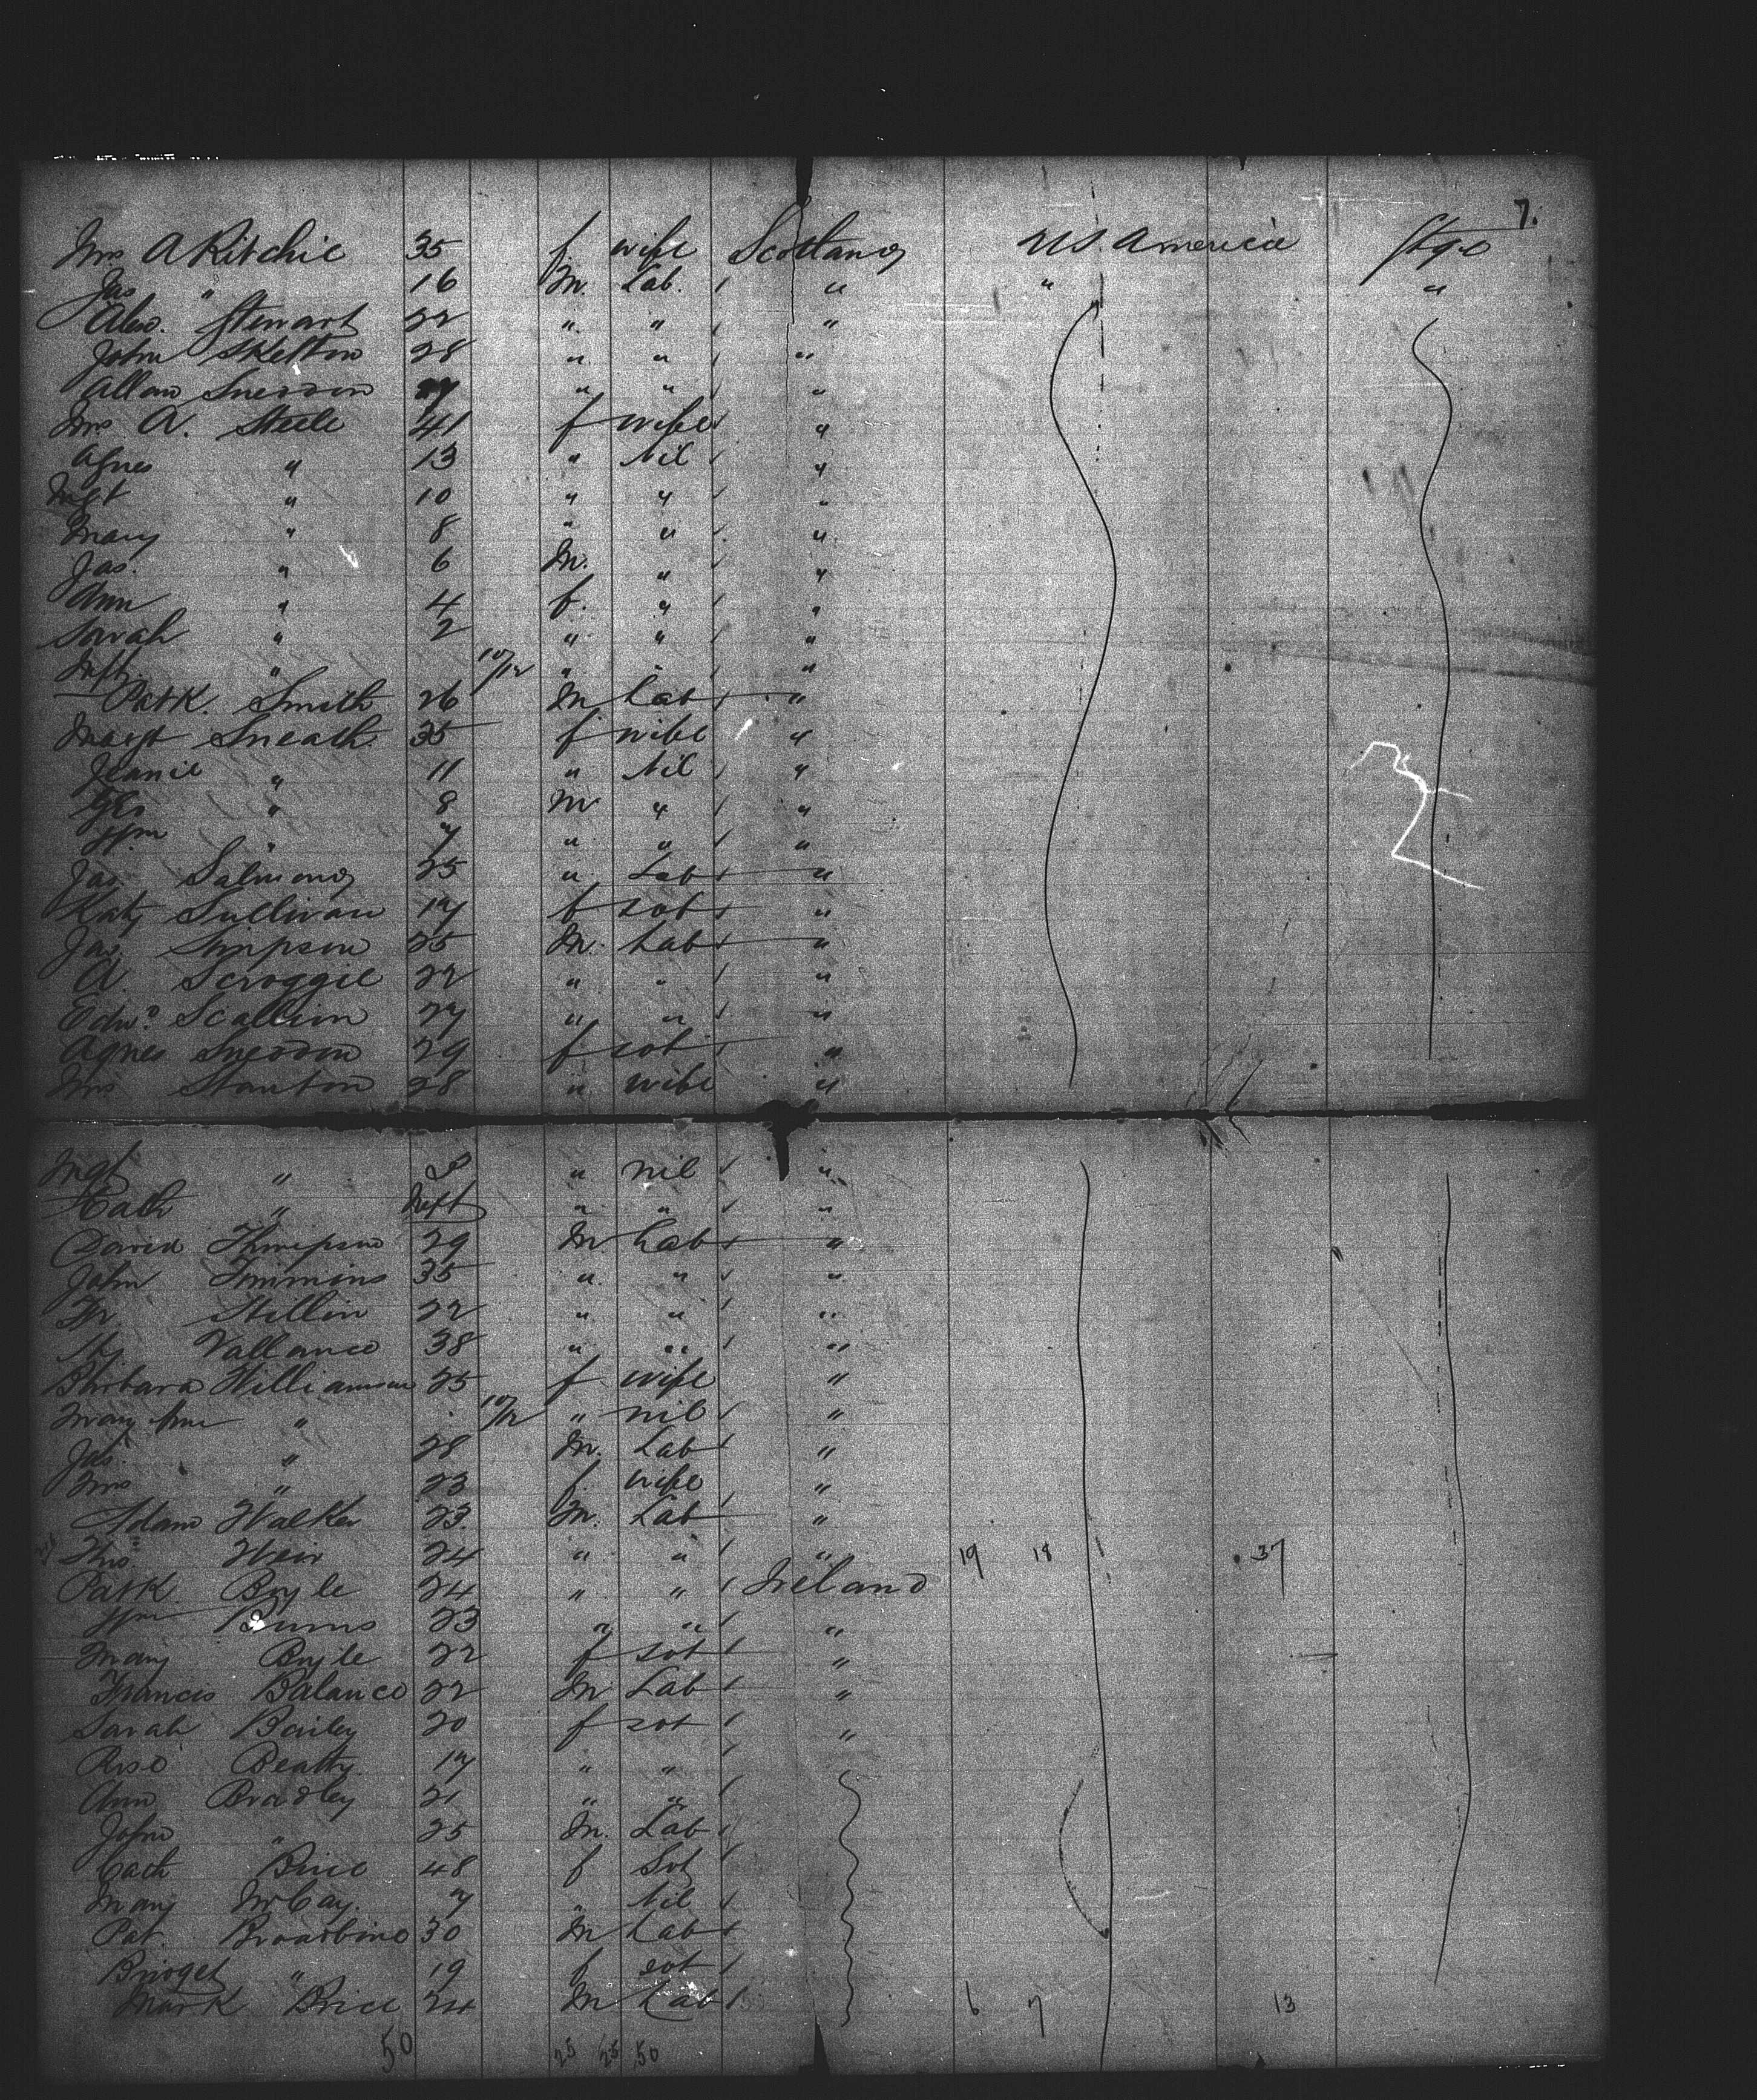 7.
Mrs A Ritchie 35 f wife Scotland US America Stge
Jas " 16 M. Lab. " " "
Alex. Stewart 22 " " "
John Skelton 28 " " "
Allan Sneddon " " "
Mrs A. Steele 41 f wife "
Agnes " 13 " Nil "
Mgt " 10 " " "
Mary " 8 " " "
Jas. " 6 M. " "
Ann " 4 f. " "
Sarah " 2 " " "
Inft " 10/12 " " "
Patk. Smith 26 M Lab "
Margt Sneath 35 f wife "
Jeanie " 11 " Nil "
Geo " 8 M " "
Wm " 7 " " "
Jas Salmond 25 " Lab "
Katy Sullivan 17 f sot "
Jas Simpson 25 M. Lab "
A. Scroggie 22 " " "
Edwd Scallion 27 " " "
Agnes Sneddon 29 f sot "
Mrs Stanton 28 " wife "
Mgt " " nil "
Cath " Inft " " "
David Thompson 29 M Lab "
John Timmins 35 " " "
22 " " "
Vallance 38 " " "
Barbara Williamson 25 f wife "
Mary Ann " 10/12 " nil "
Jas. " 28 M. Lab "
Mrs " 23 f wife "
Adam Walker 23 M. Lab "
Thos Weir 24 " " " 19 18 37
Patk Boyle 24 " " Ireland
Wm Burns 23 " " "
Mary Boyle 22 f sot "
Francis Balance 22 M Lab "
Sarah Bailey 20 f sot "
Rose Beatty 17 " "
Ann Bradley 21 " "
John " 25 M. Lab
Cath Brice 48 f Sot
Mary McCay. 7 " Nil
Pat. Broadbine 30 M Lab
Bridget " 19 f sot
Mark Brice 24 M Lab 6 7 13
50 25 25 50